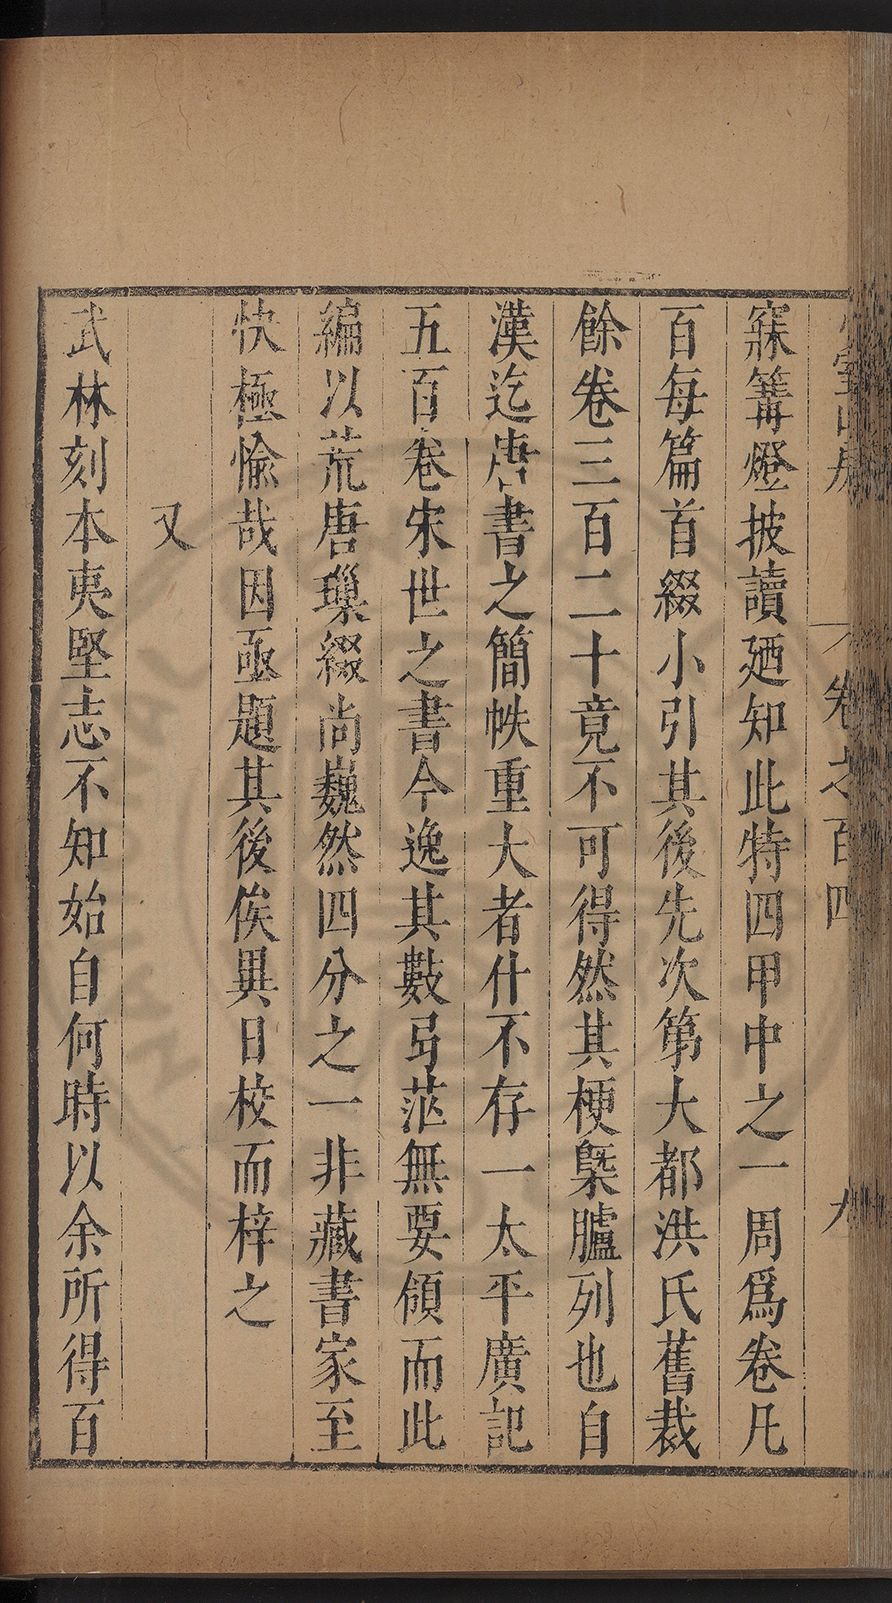 卷之百四
九
寐篝燈披讀廼知此特四甲中之一周爲卷凡
百每篇首綴小引其後先次第大都洪氏舊裁
餘卷三百二十竟不可得然其梗槩臚列也自
漢迄唐書之簡帙重大者什不存一太平廣記
五百卷宋世之書今逸其數弓茫無要領而此
編以荒唐璅綴尚巍然四分之一非藏書家至
快極愉哉因亟題其後俟異日校而梓之
又
武林刻本夷堅志不知始自何時以余所得百